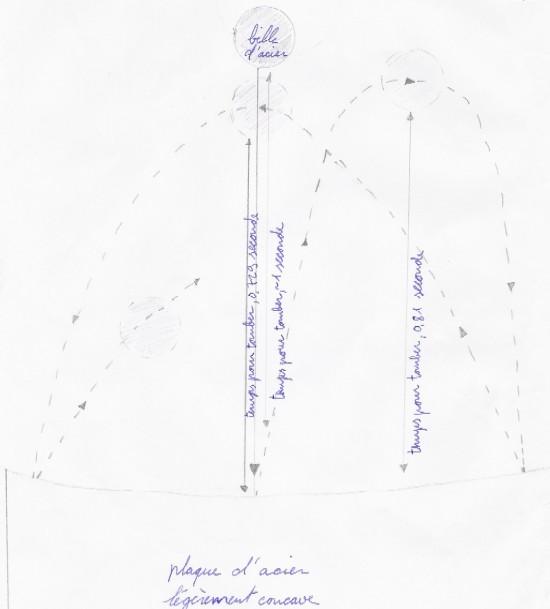 bille
d'acier
temps pour tomber, 0,729 seconde
temps pour tomber, ~1 seconde
temps pour tomber, 0,81 seconde
plaque d'acier
légèrement concave